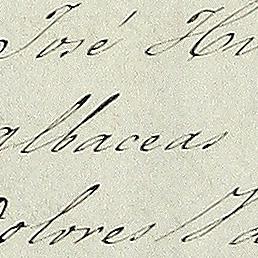 José
albaceas
Dolores